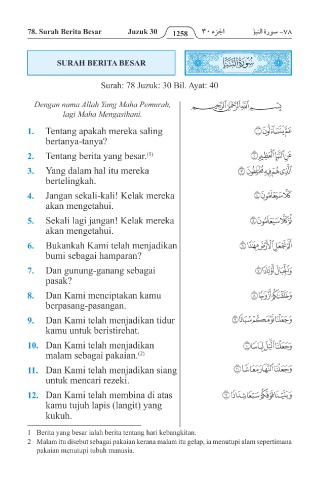 78. Surah Berita Besar Juzuk 30 1258 الجزء ٣٠ ٧٨– سورة النبإ
SURAH BERITA BESAR سُورَةُ النَّبَإِ
Surah: 78 Juzuk: 30 Bil. Ayat: 40
Dengan nama Allah Yang Maha Pemurah, بِسْمِ اللَّهِ الرَّحْمَٰنِ الرَّحِيمِ
lagi Maha Mengasihani.
1. Tentang apakah mereka saling عَمَّ يَتَسَاءَلُونَ ١
bertanya-tanya?
2. Tentang berita yang besar.(1) عَنِ النَّبَإِ الْعَظِيمِ ٢
3. Yang dalam hal itu mereka الَّذِي هُمْ فِيهِ مُخْتَلِفُونَ ٣
bertelingkah.
4. Jangan sekali-kali! Kelak mereka كَلَّا سَيَعْلَمُونَ ٤
akan mengetahui.
5. Sekali lagi jangan! Kelak mereka ثُمَّ كَلَّا سَيَعْلَمُونَ ٥
akan mengetahui.
6. Bukankah Kami telah menjadikan أَلَمْ نَجْعَلِ الْأَرْضَ مِهَادًا ٦
bumi sebagai hamparan?
7. Dan gunung-ganang sebagai وَالْجِبَالَ أَوْتَادًا ٧
pasak?
8. Dan Kami menciptakan kamu وَخَلَقْنَاكُمْ أَزْوَاجًا ٨
berpasang-pasangan.
9. Dan Kami telah menjadikan tidur وَجَعَلْنَا نَوْمَكُمْ سُبَاتًا ٩
kamu untuk beristirehat.
10. Dan Kami telah menjadikan وَجَعَلْنَا اللَّيْلَ لِبَاسًا ١٠
malam sebagai pakaian.(2)
11. Dan Kami telah menjadikan siang وَجَعَلْنَا النَّهَارَ مَعَاشًا ١١
untuk mencari rezeki.
12. Dan Kami telah membina di atas وَبَنَيْنَا فَوْقَكُمْ سَبْعًا شِدَادًا ١٢
kamu tujuh lapis (langit) yang
kukuh.
1 Berita yang besar ialah berita tentang hari kebangkitan.
2 Malam itu disebut sebagai pakaian kerana malam itu gelap, ia menutupi alam sepertimana
pakaian menutupi tubuh manusia.